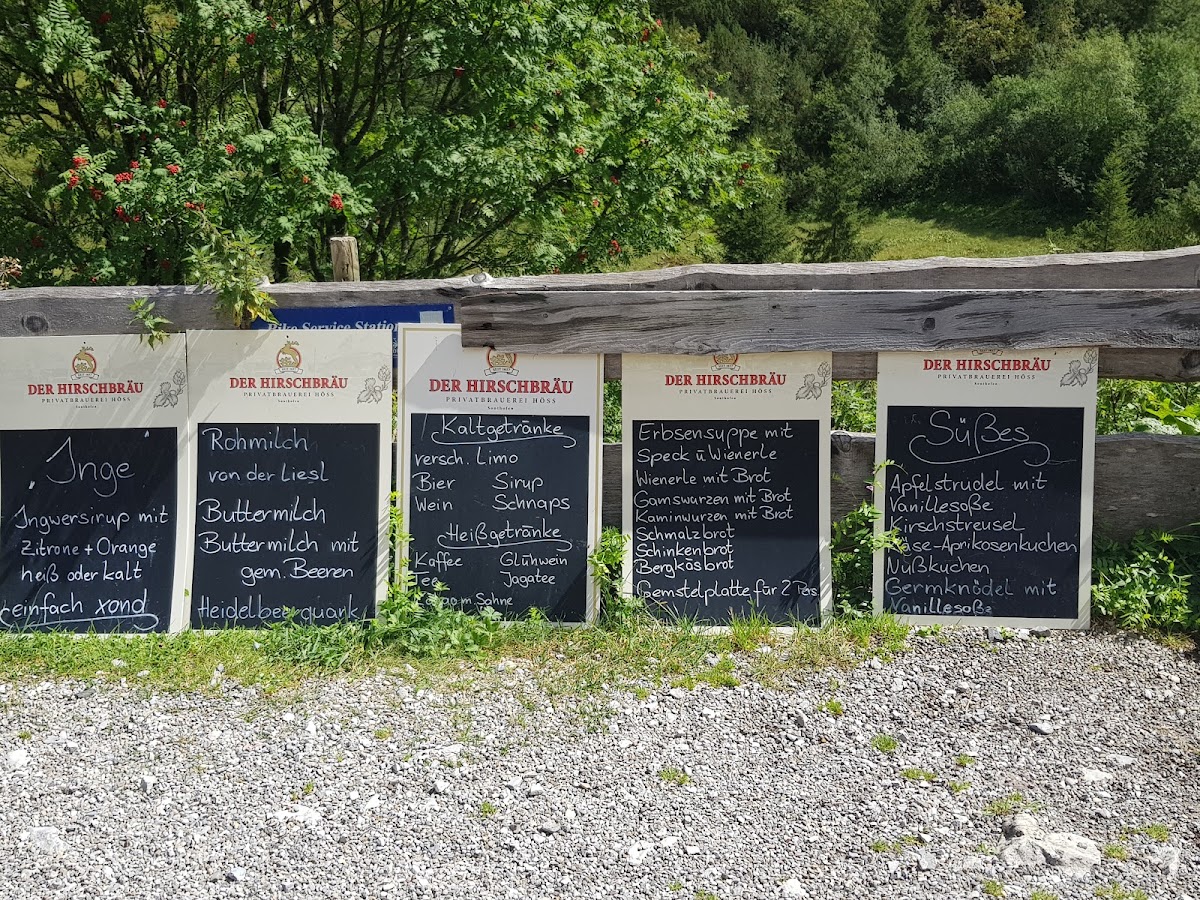 Bike Service Station
DER HIRSCHBRÄU
PRIVATBRAUEREI HÖSS
Inge
Ingwersirup mit
Zitrone + Orange
heiß oder kalt
einfach xond
DER HIRSCHBRÄU
PRIVATBRAUEREI HÖSS
Sonthofen
Rohmilch
von der Liesl
Buttermilch
Buttermilch mit
gem. Beeren
Heidelbeerquark
DER HIRSCHBRÄU
PRIVATBRAUEREI HÖSS
Sonthofen
Kaltgetränke
versch. Limo
Bier Sirup
Wein Schnaps
Heißgetränke
Kaffee Glühwein
Tee Jagatee
m. Sahne
DER HIRSCHBRÄU
PRIVATBRAUEREI HÖSS
Sonthofen
Erbsensuppe mit
Speck u. Wienerle
Wienerle mit Brot
Gamswurzen mit Brot
Kaminwurzen mit Brot
Schmalzbrot
Schinkenbrot
Bergkäsbrot
Gemstelplatte für 2 Pers
DER HIRSCHBRÄU
PRIVATBRAUEREI HÖSS
Sonthofen
Süßes
Apfelstrudel mit
Vanillesoße
Kirschstreusel
Käse-Aprikosenkuchen
Nußkuchen
Germknödel mit
Vanillesoße